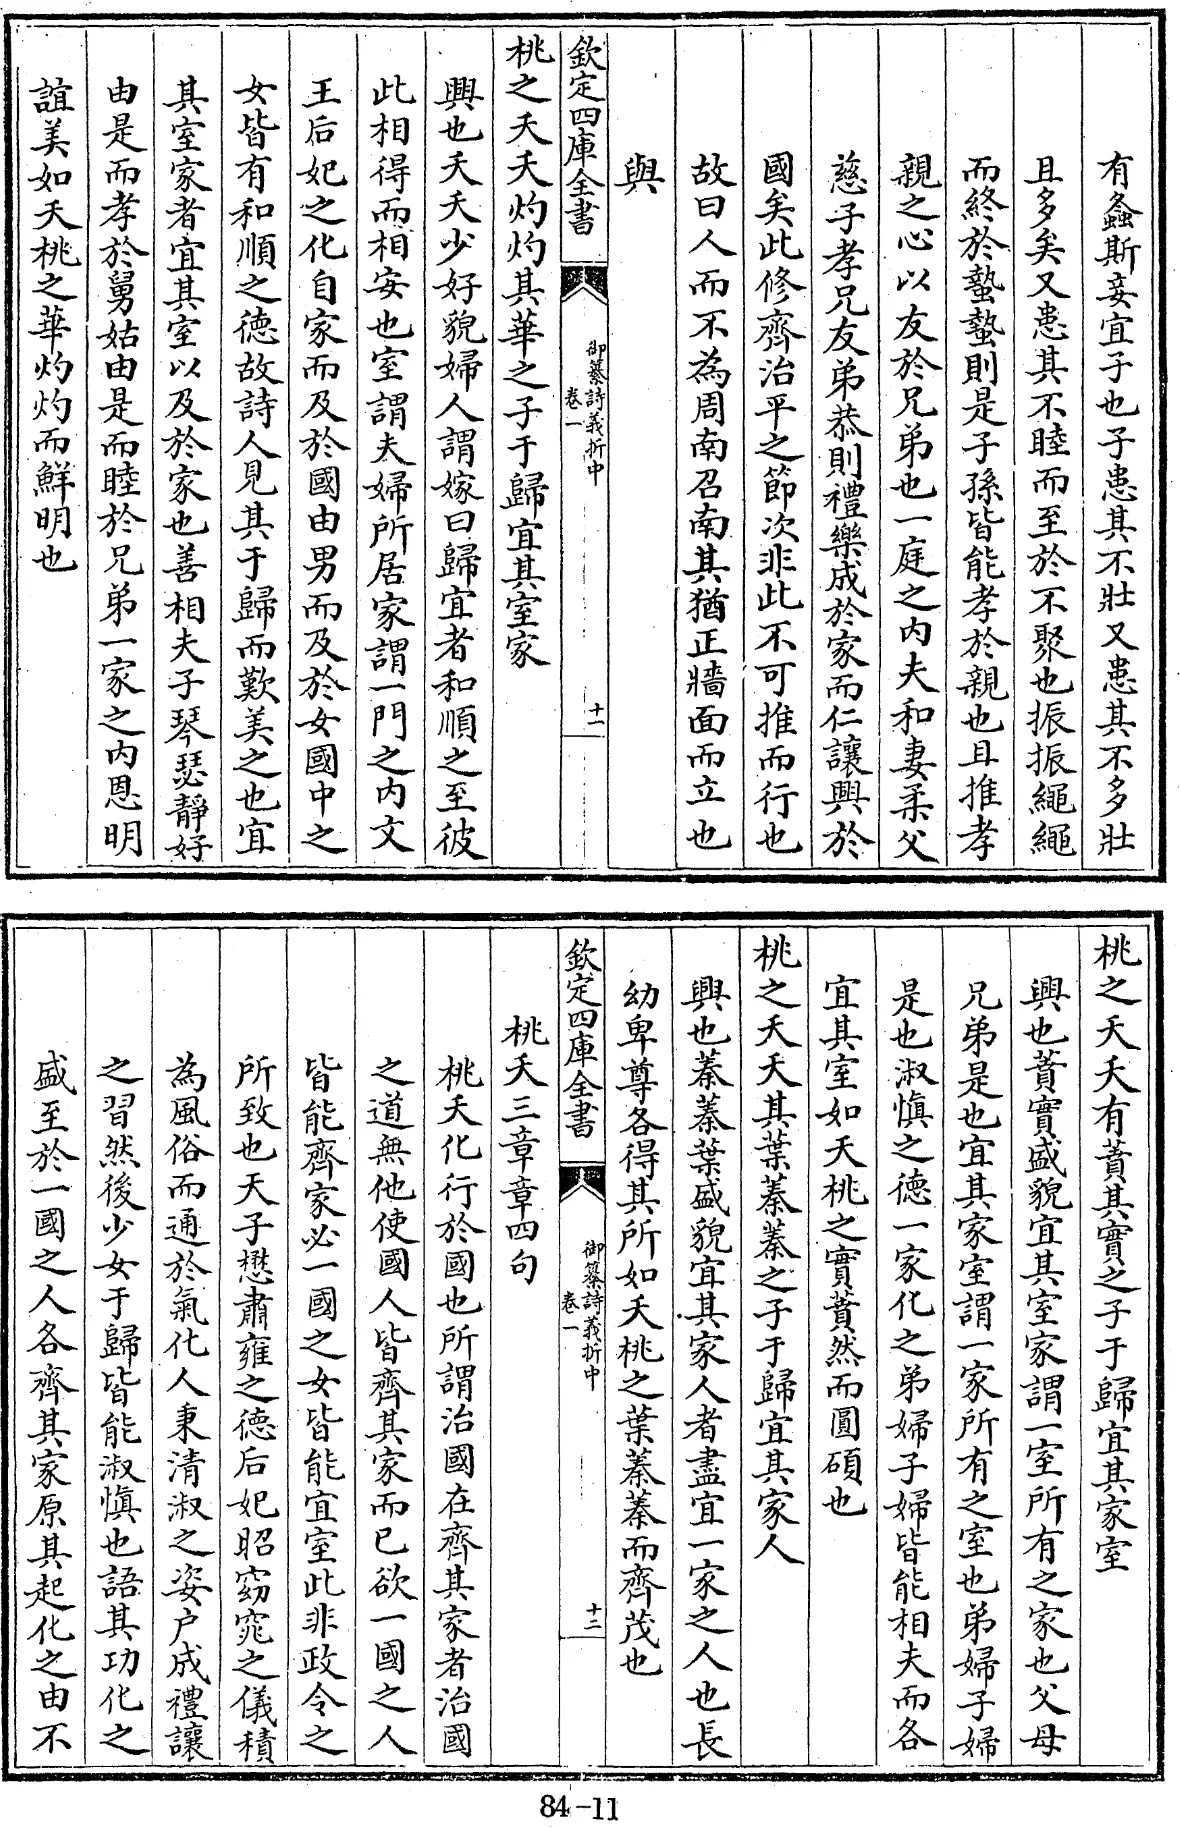 有螽斯妾宜子也子患其不壯又患其不多壯
且多矣又患其不睦而至於不聚也振振繩繩
而終於蟄蟄則是子孫皆能孝於親也且推孝
親之心以友於兄弟也一庭之內夫和妻柔父
慈子孝兄友弟恭則禮樂成於家而仁讓興於
國矣此修齊治平之節次非此不可推而行也
故曰人而不為周南召南其猶正牆面而立也
與
欽定四庫全書
御纂詩義折中
卷一
十一
桃之夭夭灼灼其華之子于歸宜其室家
興也夭夭少好貌婦人謂嫁曰歸宜者和順之至彼
此相得而相安也室謂夫婦所居家謂一門之內文
王后妃之化自家而及於國由男而及於女國中之
女皆有和順之德故詩人見其于歸而歎美之也宜
其室家者宜其室以及於家也善相夫子琴瑟靜好
由是而孝於舅姑由是而睦於兄弟一家之內恩明
誼美如夭桃之華灼灼而鮮明也
桃之夭夭有蕡其實之子于歸宜其家室
興也蕡實盛貌宜其室家謂一室所有之家也父母
兄弟是也宜其家室謂一家所有之室也弟婦子婦
是也淑慎之德一家化之弟婦子婦皆能相夫而各
宜其室如夭桃之實蕡然而圓碩也
桃之夭夭其葉蓁蓁之子于歸宜其家人
興也蓁蓁葉盛貌宜其家人者盡宜一家之人也長
幼卑尊各得其所如夭桃之葉蓁蓁而齊茂也
欽定四庫全書
御纂詩義折中
卷一
十二
桃夭三章章四句
桃夭化行於國也所謂治國在齊其家者治國
之道無他使國人皆齊其家而已欲一國之人
皆能齊家必一國之女皆能宜室此非政令之
所致也天子懋肅雍之德后妃昭窈窕之儀積
為風俗而通於氣化人秉清淑之姿戶成禮讓
之習然後少女于歸皆能淑慎也語其功化之
盛至於一國之人各齊其家原其起化之由不
84-11